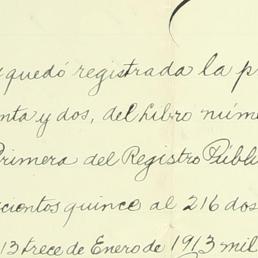 quedó registrada la p
nta y dos, del Libro núme
Primera del Registro Públi
cientos quince al 216 dos
13 trece de Enero de 1913 mil